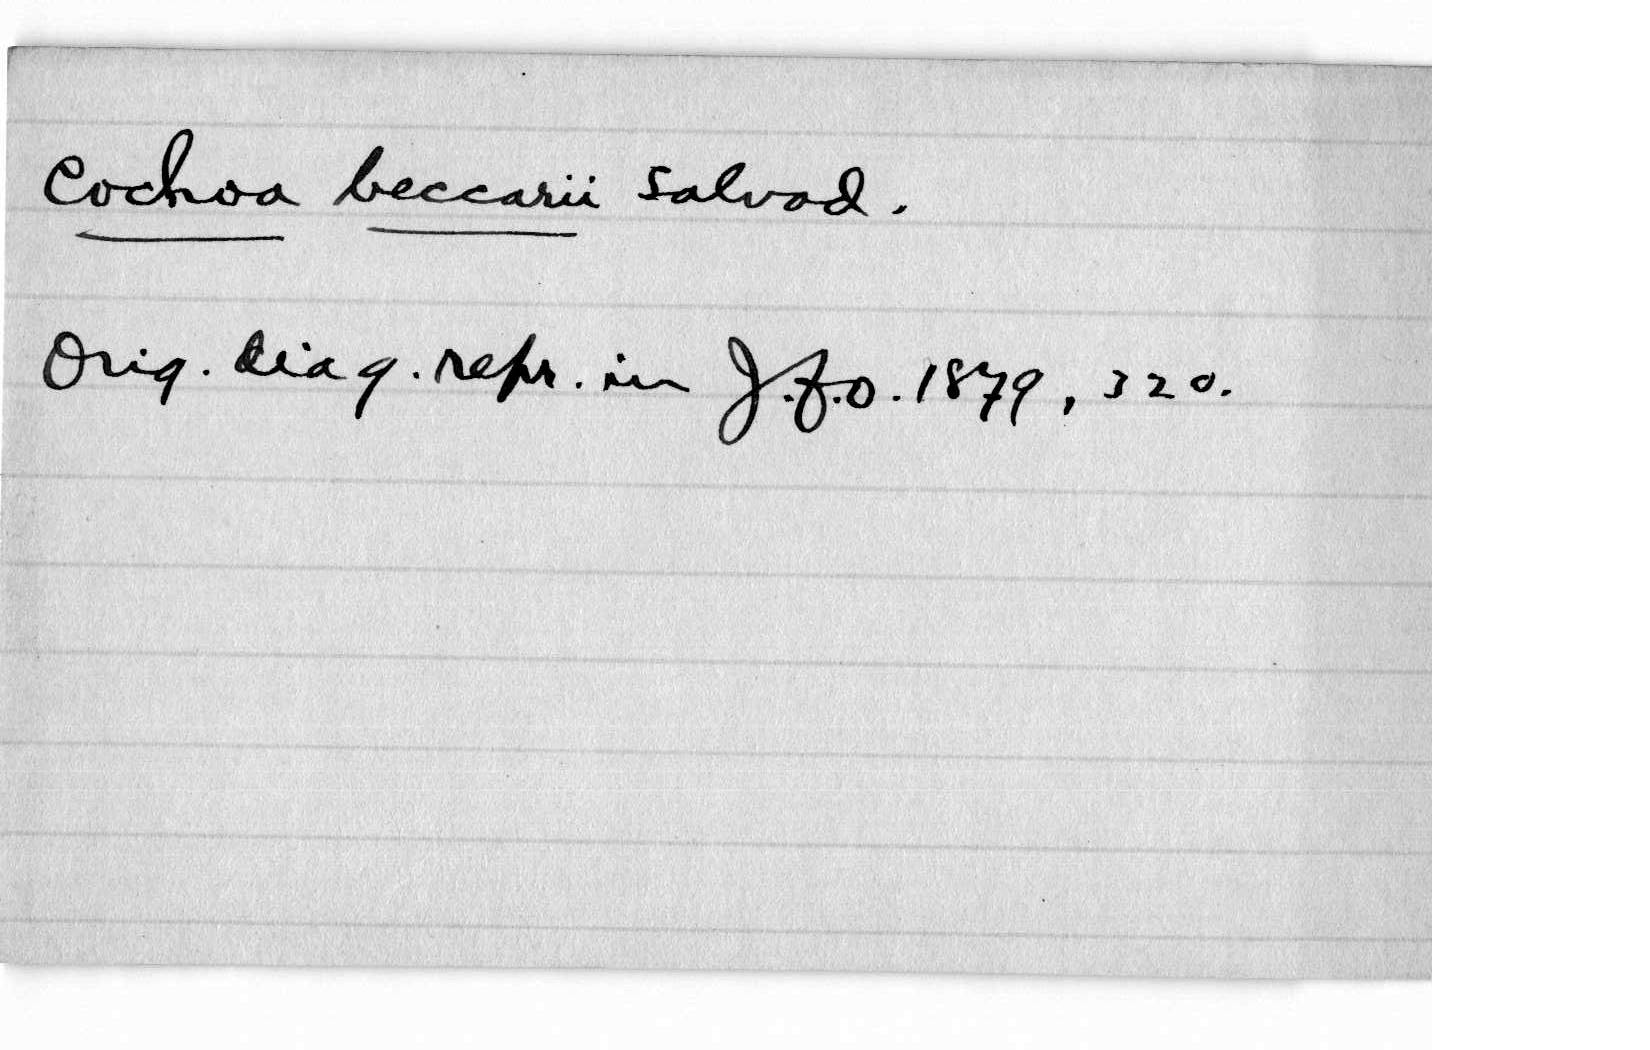 Cochoa beccarii Salvad.
Orig. diag. repr. in J.f.O. 1879, 320.